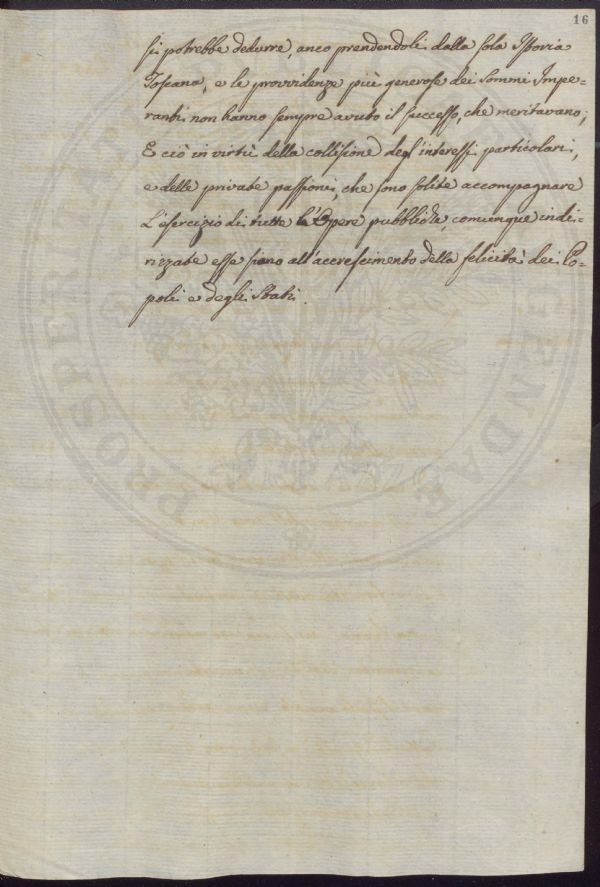 16
si potrebbe dedurre, anco prendendoli dalla sola Istoria
Toscana, e le provvidenze più generose dei Sommi Impe-
ranti non hanno sempre avuto il successo, che meritavano;
E ciò in virtù della collisione degl'interessi particolari,
e delle private passioni, che sono solite accompagnare
L'esercizio di tutte l'Opere pubbliche, comunque indi-
rizzate esse siano all'accrescimento della felicità dei Po-
poli e degli Stati.
PROSPE
ENDAE